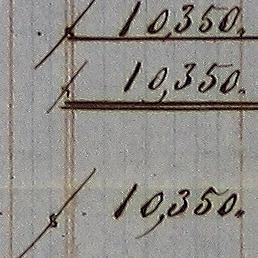 10,350.
10,350.
10,350.